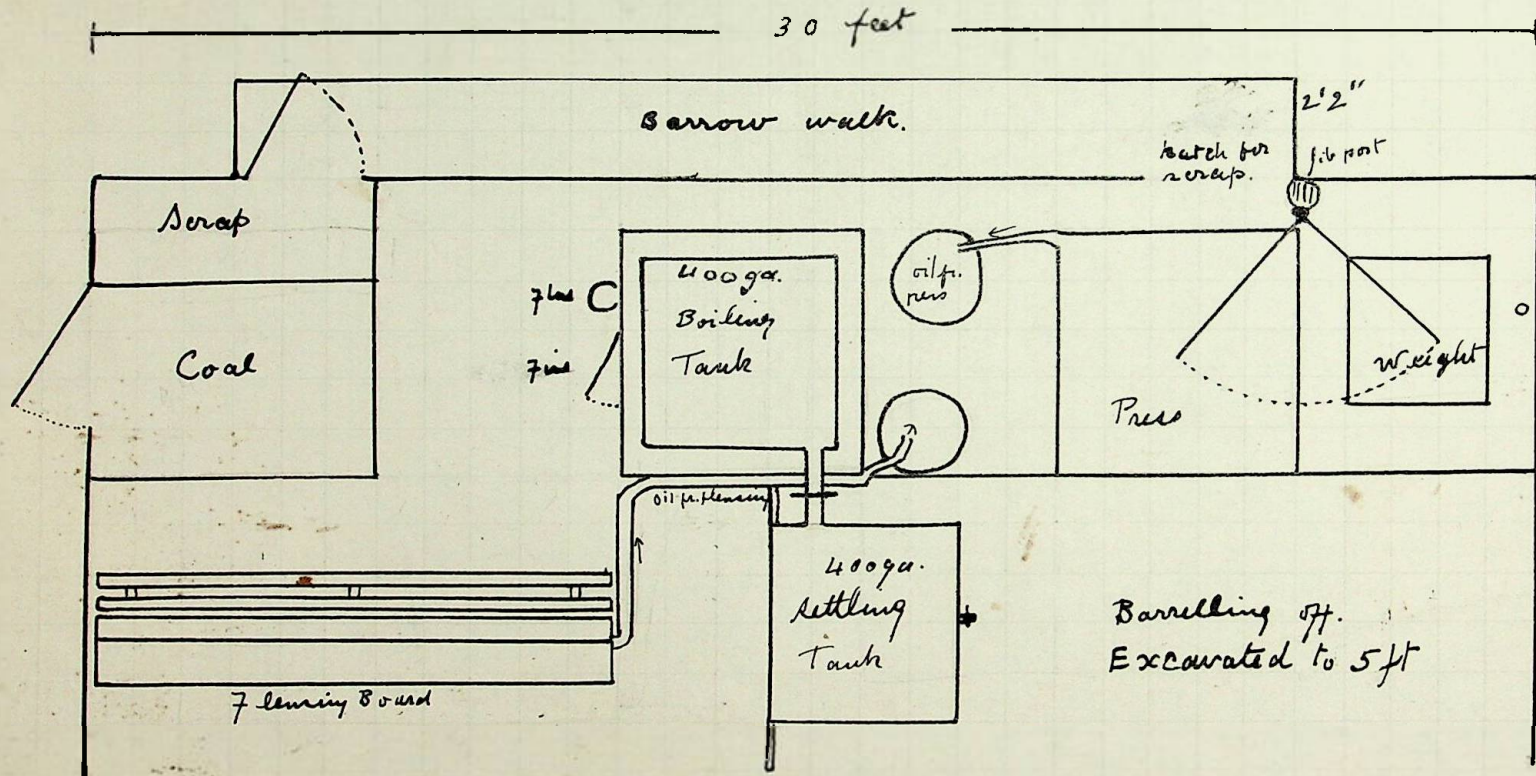 30 feet
Barrow walk.
2'2"
hatch for
scrap.
jib post
Scrap
Coal
Flue
Fire
400ga.
Boiling
Tank
oil fr.
press
Press
Weight
oil fr. flensing
400ga.
Settling
Tank
Flensing Board
Barrelling off.
Excavated to 5 ft